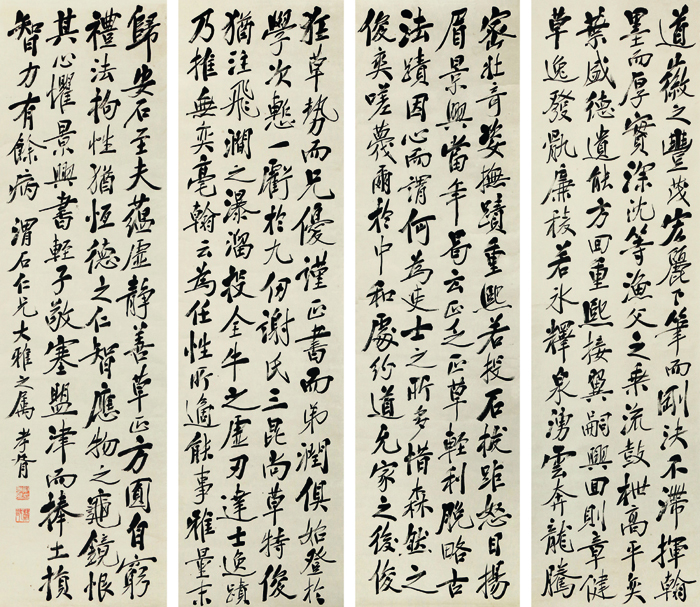 道徽之豐茂宏麗下筆而剛決不滯揮翰
墨而厚實深沈等漁父之乘流鼓枻高平奕
葉盛德遺能方回重熙接翼嗣興回則章健
草逸發體廉稜若冰釋泉湧雲奔龍騰
密壯奇姿撫蹟重熙若投石拔距怒目揚
眉景興當年曷云正乏正草輕利脫略古
法蹟因心而謂何為吏士之所多惜森然之
俊爽嗟蔑爾於中和處約道允家之後俊
狂草勢而兄優謹正書而弟潤俱始登於
學次慙一虧於九仞謝氏三昆尚草特俊
猶注飛澗之瀑溜投全牛之虛刃達士逸蹟
乃推無奕毫翰云為任性所適能事雅量末
歸安石至夫蘊虛靜善草正方圓自窮
禮法拘性猶恆德之仁智應物之龜鏡恨
其心懼景興書輕子敬塞盟津而捧土損
智力有餘病 渭石仁兄大雅之屬 孝胥